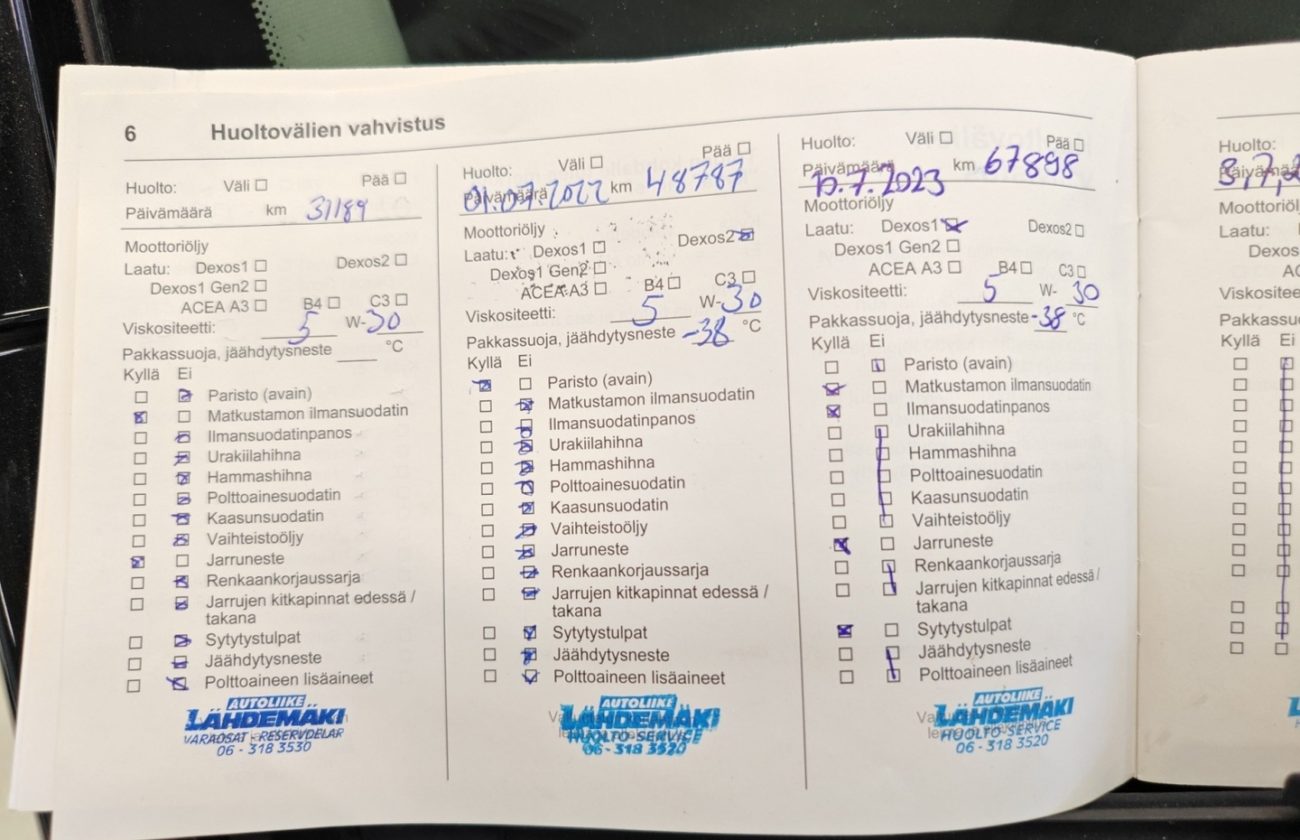 6 Huoltovälien vahvistus
Huolto: Väli Pää
Päivämäärä km 31189
Moottoriöljy
Laatu: Dexos1 Dexos2
Dexos1 Gen2
ACEA A3 B4 C3
Viskositeetti: 5 W-30
Pakkassuoja, jäähdytysneste °C
Kyllä Ei
Paristo (avain)
Matkustamon ilmansuodatin
Ilmansuodatinpanos
Urakiilahihna
Hammashihna
Polttoainesuodatin
Kaasunsuodatin
Vaihteistoöljy
Jarruneste
Renkaankorjaussarja
Jarrujen kitkapinnat edessä /
takana
Sytytystulpat
Jäähdytysneste
Polttoaineen lisäaineet
AUTOLIIKE
LÄHDEMÄKI
VARAOSAT - RESERVDELAR
06 - 318 3530
Huolto: Väli Pää
Päivämäärä 01.07.2022 km 48787
Moottoriöljy
Laatu: Dexos1 Dexos2
Dexos1 Gen2
ACEA A3 B4 C3
Viskositeetti: 5 W-30
Pakkassuoja, jäähdytysneste -38 °C
Kyllä Ei
Paristo (avain)
Matkustamon ilmansuodatin
Ilmansuodatinpanos
Urakiilahihna
Hammashihna
Polttoainesuodatin
Kaasunsuodatin
Vaihteistoöljy
Jarruneste
Renkaankorjaussarja
Jarrujen kitkapinnat edessä /
takana
Sytytystulpat
Jäähdytysneste
Polttoaineen lisäaineet
AUTOLIIKE
LÄHDEMÄKI
HUOLTO-SERVICE
06 - 318 3520
Huolto: Väli Pää
Päivämäärä km 67898
Moottoriöljy
Laatu: Dexos1 Dexos2
Dexos1 Gen2
ACEA A3 B4 C3
Viskositeetti: 5 W- 30
Pakkassuoja, jäähdytysneste -38 °C
Kyllä Ei
Paristo (avain)
Matkustamon ilmansuodatin
Ilmansuodatinpanos
Urakiilahihna
Hammashihna
Polttoainesuodatin
Kaasunsuodatin
Vaihteistoöljy
Jarruneste
Renkaankorjaussarja
Jarrujen kitkapinnat edessä /
takana
Sytytystulpat
Jäähdytysneste
Polttoaineen lisäaineet
AUTOLIIKE
LÄHDEMÄKI
HUOLTO-SERVICE
06 - 318 3520
Huolto:
Laatu:
Kyllä Ei